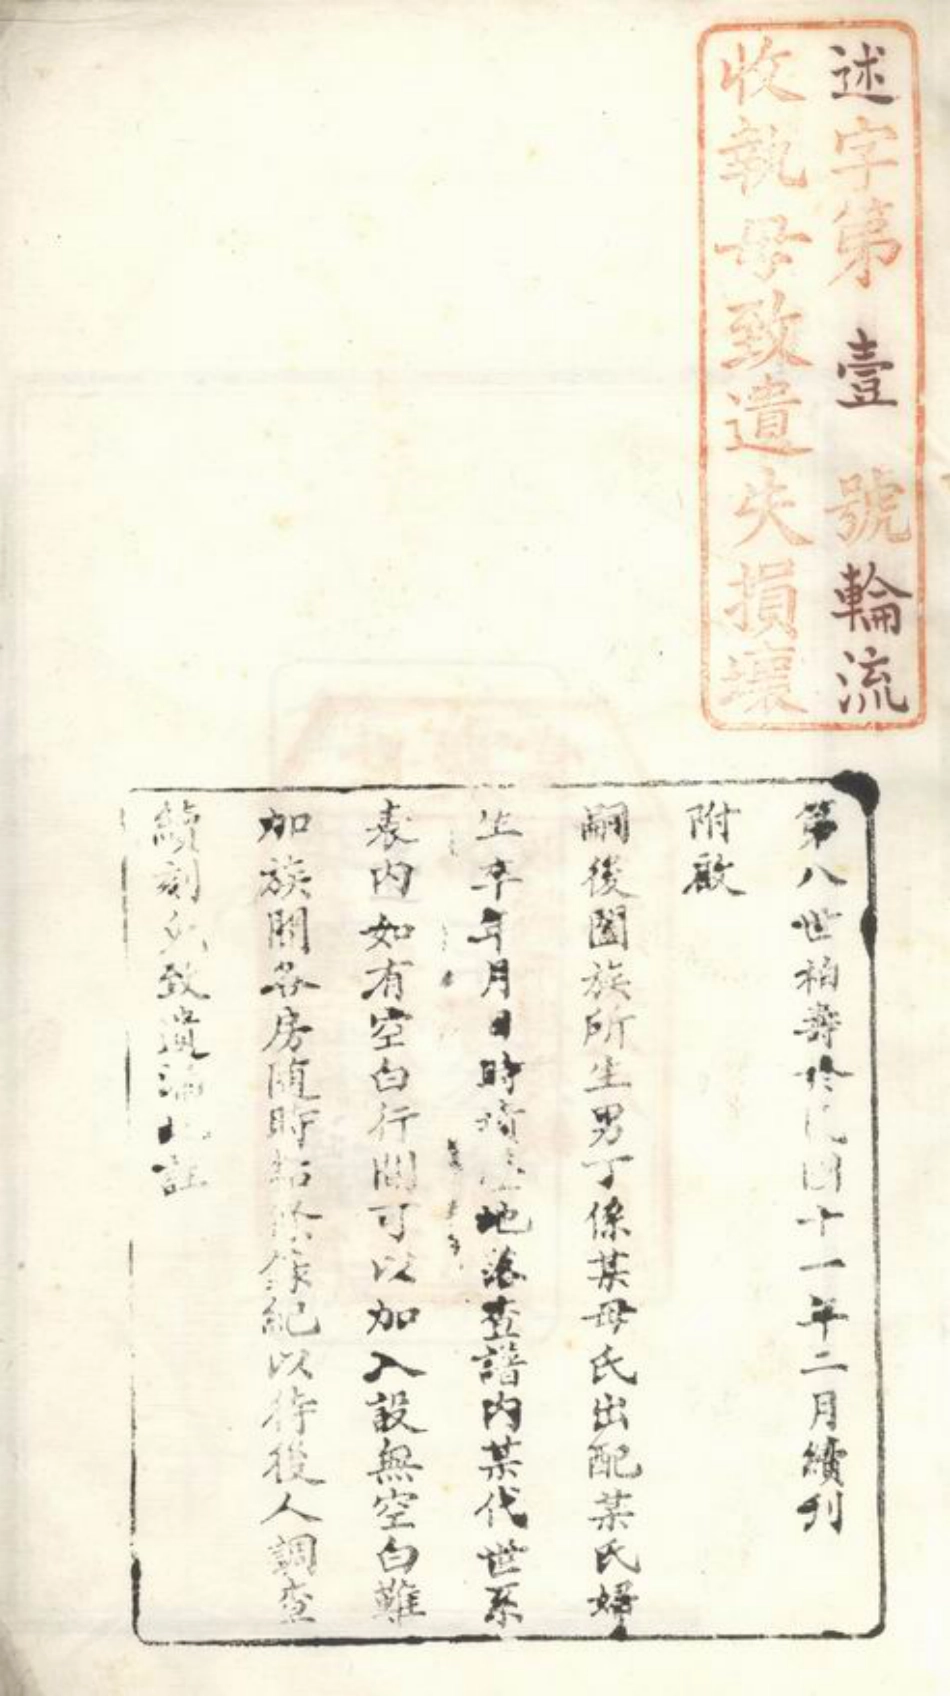 述字第壹號輪流
收執毋致遺失損壞
第八世柏壽於民國十一年二月續刊
附啟
嗣後闔族所生男丁係某母氏出配某氏婦
生卒年月日時墳塋地落查譜内某代世系
表内如有空白行間可以加入設無空白難
加族關各房随時 錄紀以待後人調查
續刻 致遺漏此註